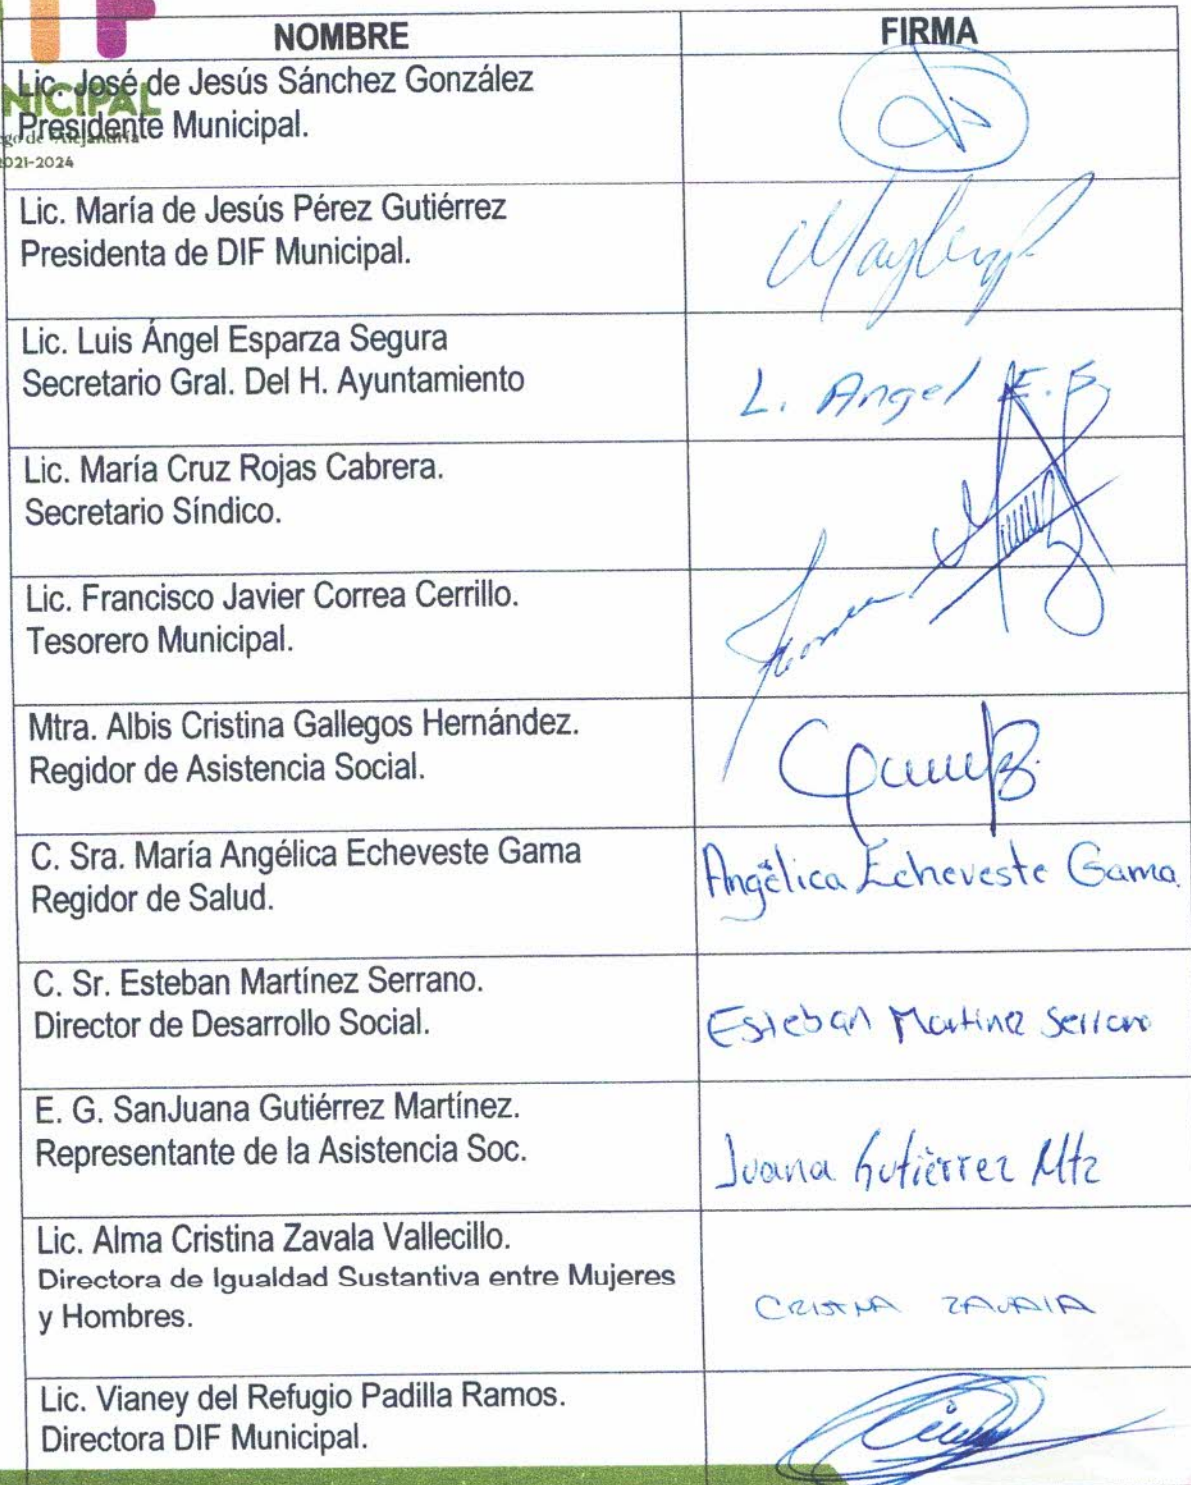 NOMBRE FIRMA
Lic. José de Jesús Sánchez González
NICIPAL
Presidente Municipal.
go de Alejandría
021-2024
Lic. María de Jesús Pérez Gutiérrez
Presidenta de DIF Municipal.
Lic. Luis Ángel Esparza Segura
Secretario Gral. Del H. Ayuntamiento
L. Angel E.S.
Lic. María Cruz Rojas Cabrera.
Secretario Síndico.
Lic. Francisco Javier Correa Cerrillo.
Tesorero Municipal.
Mtra. Albis Cristina Gallegos Hernández.
Regidor de Asistencia Social.
C. Sra. María Angélica Echeveste Gama
Regidor de Salud.
Angélica Echeveste Gama.
C. Sr. Esteban Martínez Serrano.
Director de Desarrollo Social.
Esteban Martinez Serrano
E. G. SanJuana Gutiérrez Martínez.
Representante de la Asistencia Soc.
Juana Gutiérrez Mtz
Lic. Alma Cristina Zavala Vallecillo.
Directora de Igualdad Sustantiva entre Mujeres
y Hombres.
CRISTINA ZAVALA
Lic. Vianey del Refugio Padilla Ramos.
Directora DIF Municipal.